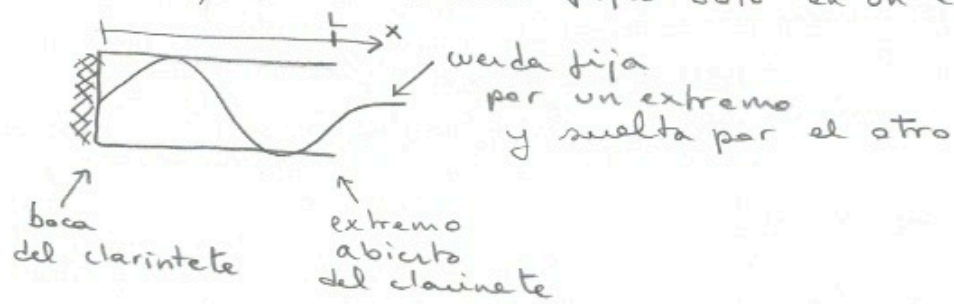 solo en un
L
x
cuerda fija
por un extremo
y suelta por el otro
boca
del clarintete
extremo
abierto
del clarinete